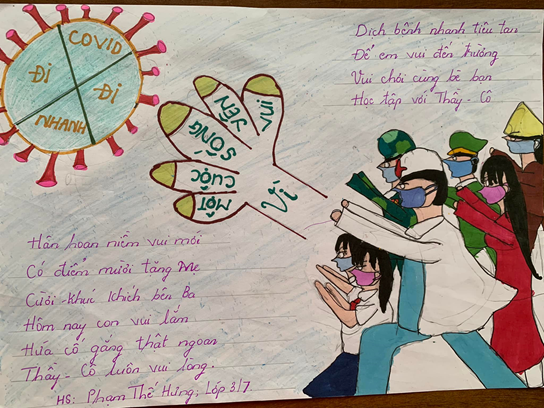 COVID
ĐI
ĐI
NHANH
Vì
MỘT
CUỘC
SỐNG
YÊN
VUI
Dịch bệnh nhanh tiêu tan
Để em vui đến trường
Vui chơi cùng bè bạn
Học tập với Thầy - Cô
Hân hoan niềm vui mới
Có điểm mười tặng Mẹ
Cười khúc khích bên Ba
Hôm nay con vui lắm
Hứa cố gắng thật ngoan
Thầy - Cô luôn vui lòng.
HS: Phạm Thế Hưng; Lớp 3/7